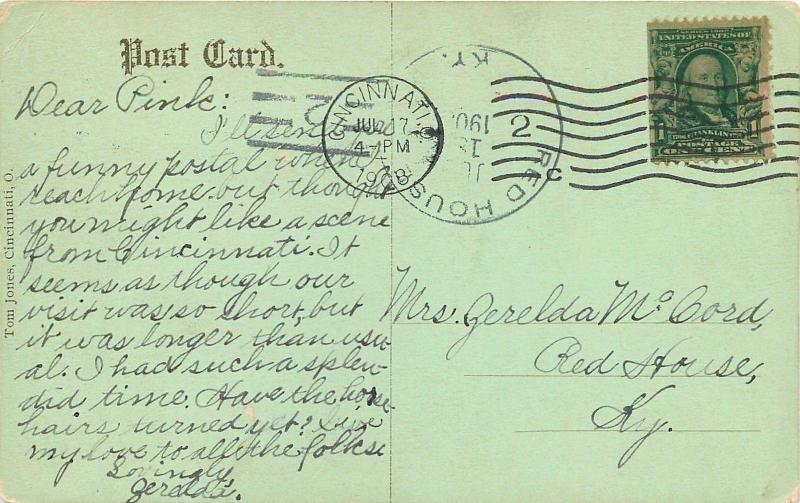 Post Card.
Dear Pink:
I'll send you
a funny postal when I
reach home but thought
you might like a scene
from Cincinnati. It
seems as though our
visit was so short, but
it was longer than usu
al. I had such a splen-
did time. Have the horse
hairs turned yet? Give
my love to all the folkse
Lovingly,
Zerelda.
Tom Jones, Cincinnati, O.
CINCINNATI, O.
JUL 17
4-PM
1908
RED HOUSE
KY.
JUL
18
190
2
C
SERIES 1902
UNITED STATES OF
AMERICA
1 FRANKLIN 1
POSTAGE
CENTS
Mrs. Zerelda McCord,
Red House,
Ky.